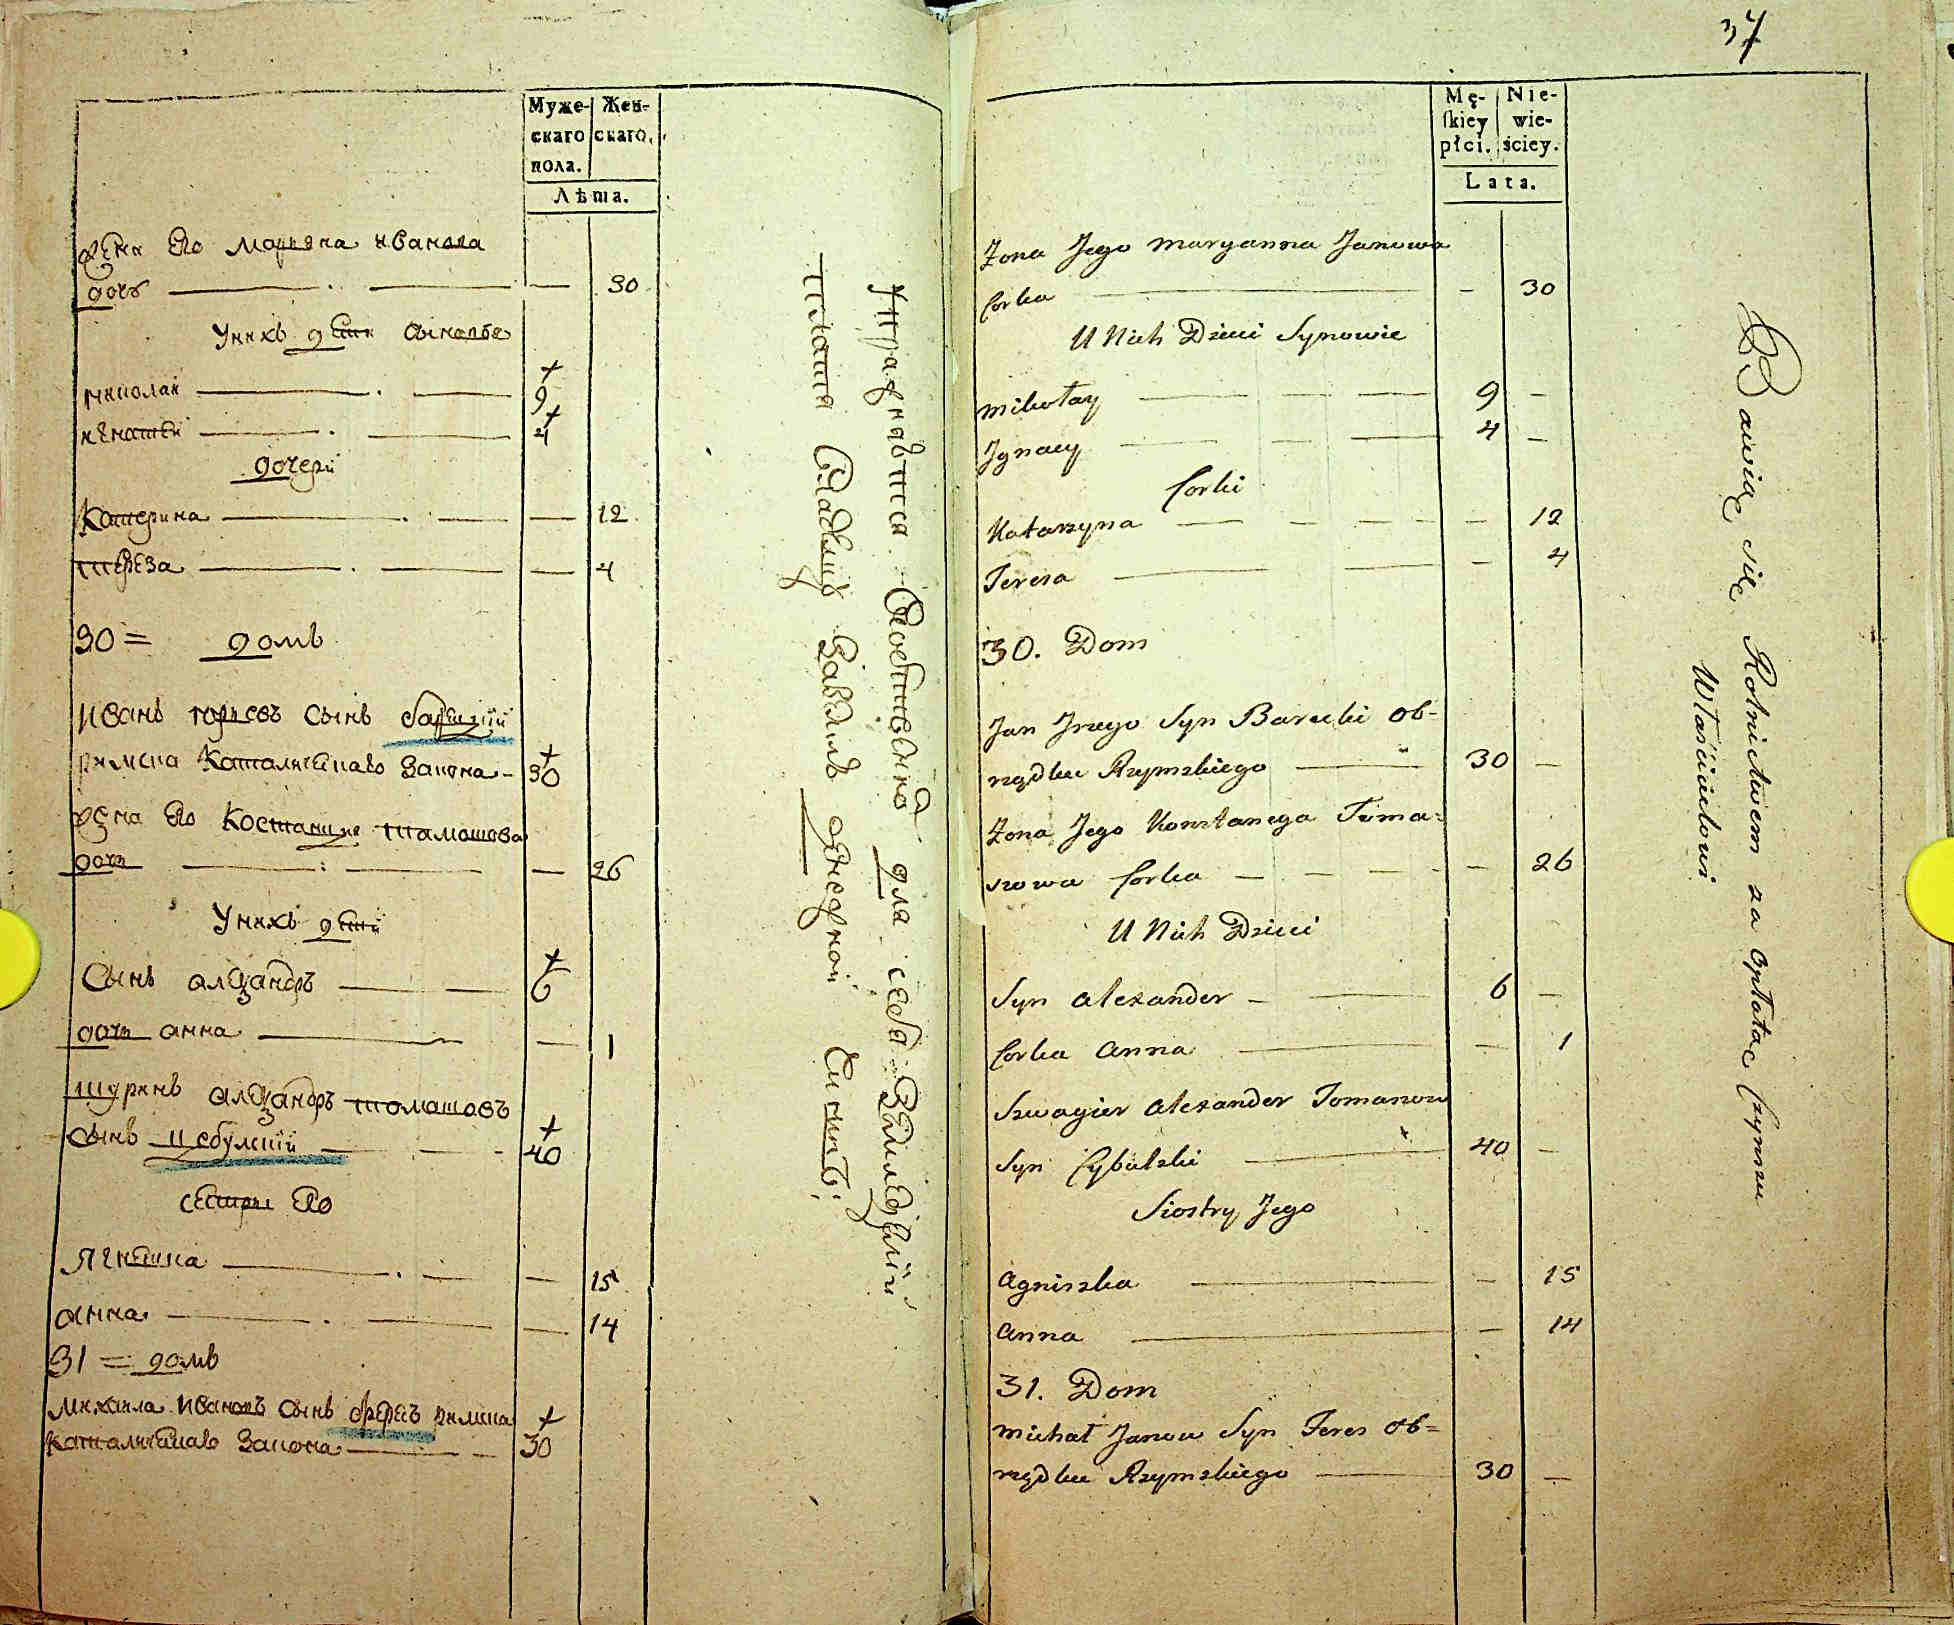 Муже-
скаго
пола.
Жен-
скаго.
Лѣта.
жена его марьяна иванова
дочь 30
у нихъ дети сыновья
николай 9
игнатей 4
дочери
Катерина 12
тереза 4
30 = домъ
иванъ юрьевъ сынъ барецкій
римска католицкаго закона 30
жена его костанция томашова
дочь 26
у нихъ дети
сынъ александръ 6
дочь анна 1
шуринъ александръ томашовъ
сынъ цебулский 40
сестры его
Ягнешка 15
анна 14
31 = домъ
михаила ивановъ сынъ ферецъ римска
католицкаго закона 30
Упражнаются собственно для себя земледелии
платя владелцу завземъ денежной чиншъ.
37
Mę-
ſkiey
płci.
Nie-
wie-
ściey.
Lata.
Żona Jego Maryanna Janowa
Corka 30
U Nich Dzieci Synowie
Mikołay 9
Jgnacy 4
Corki
Katarzyna 12
Teresa 4
30. Dom
Jan Jrzego Syn Barecki Ob-
rządku Rzymskiego 30
Żona Jego Konstancya Toma-
szowa Corka 26
U Nich Dzieci
Syn Alexander 6
Corka Anna 1
Szwagier Alexander Tomaszow
Syn Cybulski 40
Siostry Jego
Agniszka 15
Anna 14
31. Dom
Michał Janow Syn Feres Ob=
rządku Rzymskiego 30
Bawią się Rolnictwem za Opłatąc Czynszu
Właścicielowi